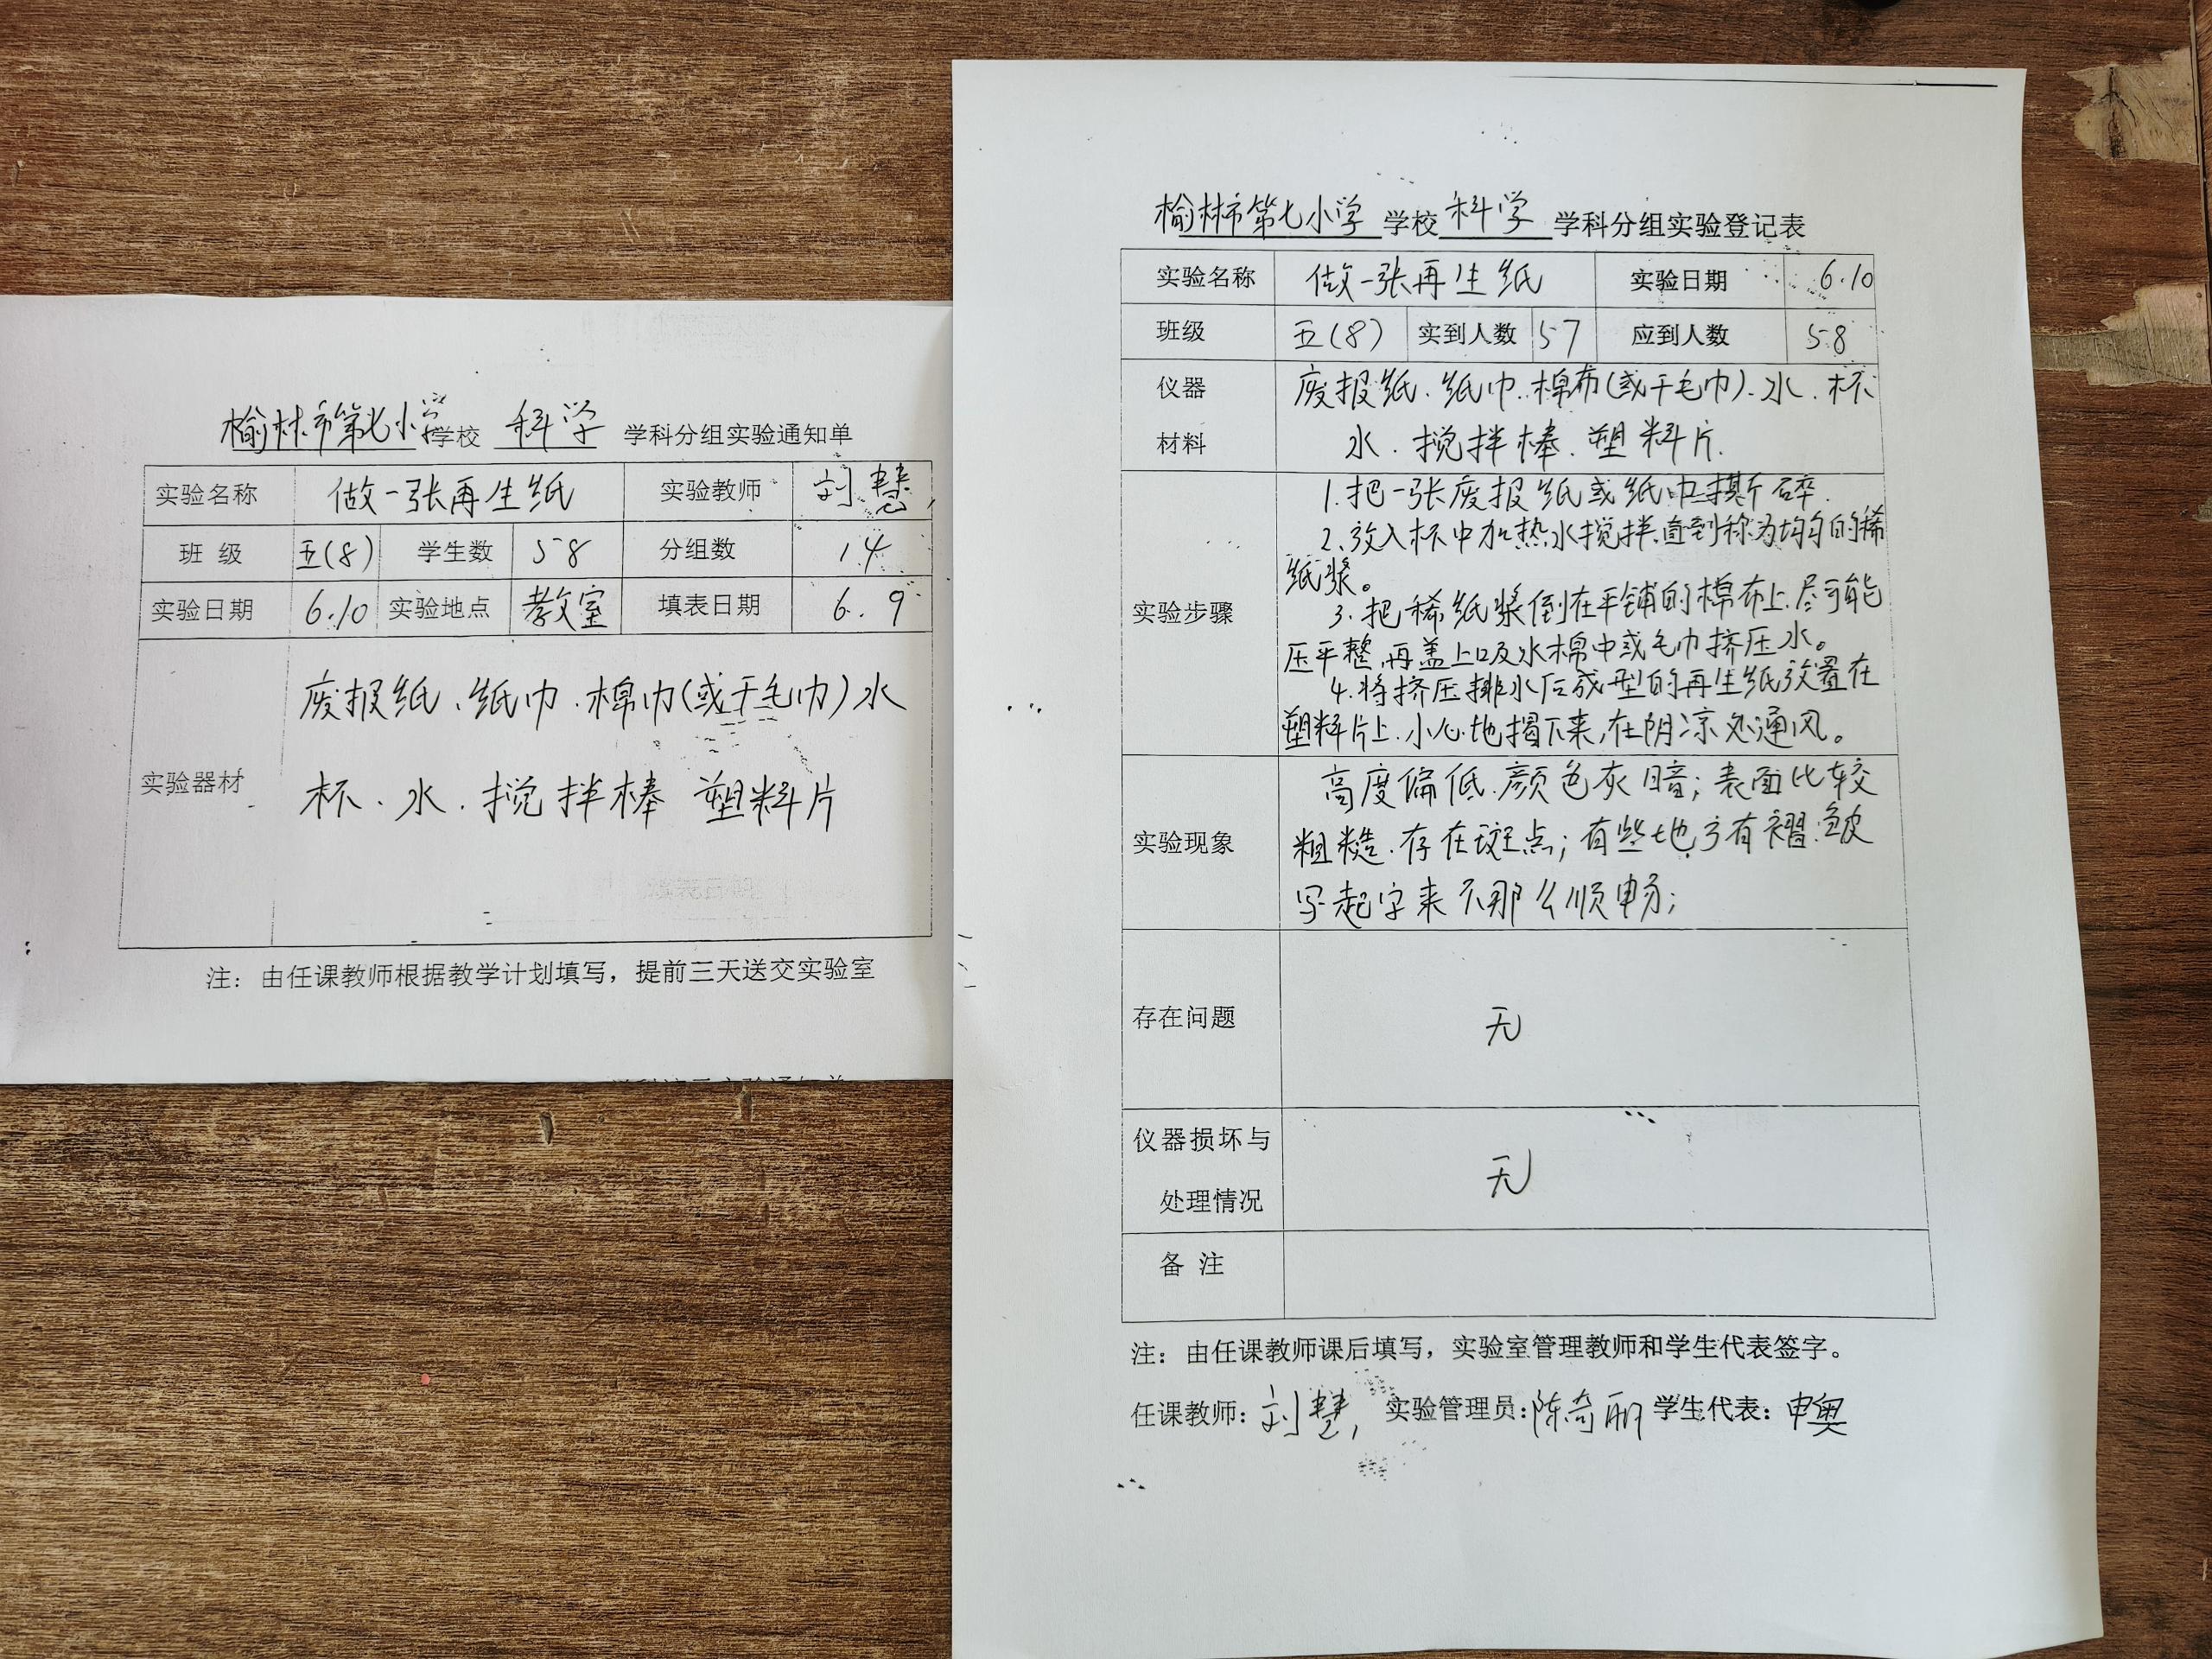 榆林市第七小学学校 科学 学科分组实验通知单
实验名称 做一张再生纸 实验教师 刘慧
班 级 五(8) 学生数 58 分组数 14
实验日期 6.10 实验地点 教室 填表日期 6.9
废报纸、纸巾.棉巾(或干毛巾)水
实验器材
杯.水.搅拌棒 塑料片
注：由任课教师根据教学计划填写，提前三天送交实验室
榆林市第七小学 学校 科学 学科分组实验登记表
实验名称 做一张再生纸 实验日期 6.10
班级 五(8) 实到人数 57 应到人数 58
仪器 废报纸.纸巾.棉布(或干毛巾).水.杯
材料 水.搅拌棒.塑料片.
实验步骤
1.把一张废报纸或纸巾撕碎.
2.放入杯中加热水搅拌,直到称为均匀的稀
纸浆。
3.把稀纸浆倒在平铺的棉布上.尽可能
压平整,再盖上吸水棉巾或毛巾挤压水。
4.将挤压排水后成型的再生纸放置在
塑料片上.小心地揭下来,在阴凉处通风。
实验现象
高度偏低.颜色灰暗;表面比较
粗糙.存在斑点;有些地方有褶皱
写起字来不那么顺畅;
存在问题 无
仪器损坏与
处理情况 无
备 注
注：由任课教师课后填写，实验室管理教师和学生代表签字。
任课教师：刘慧 实验管理员：陈奇丽 学生代表：申奥